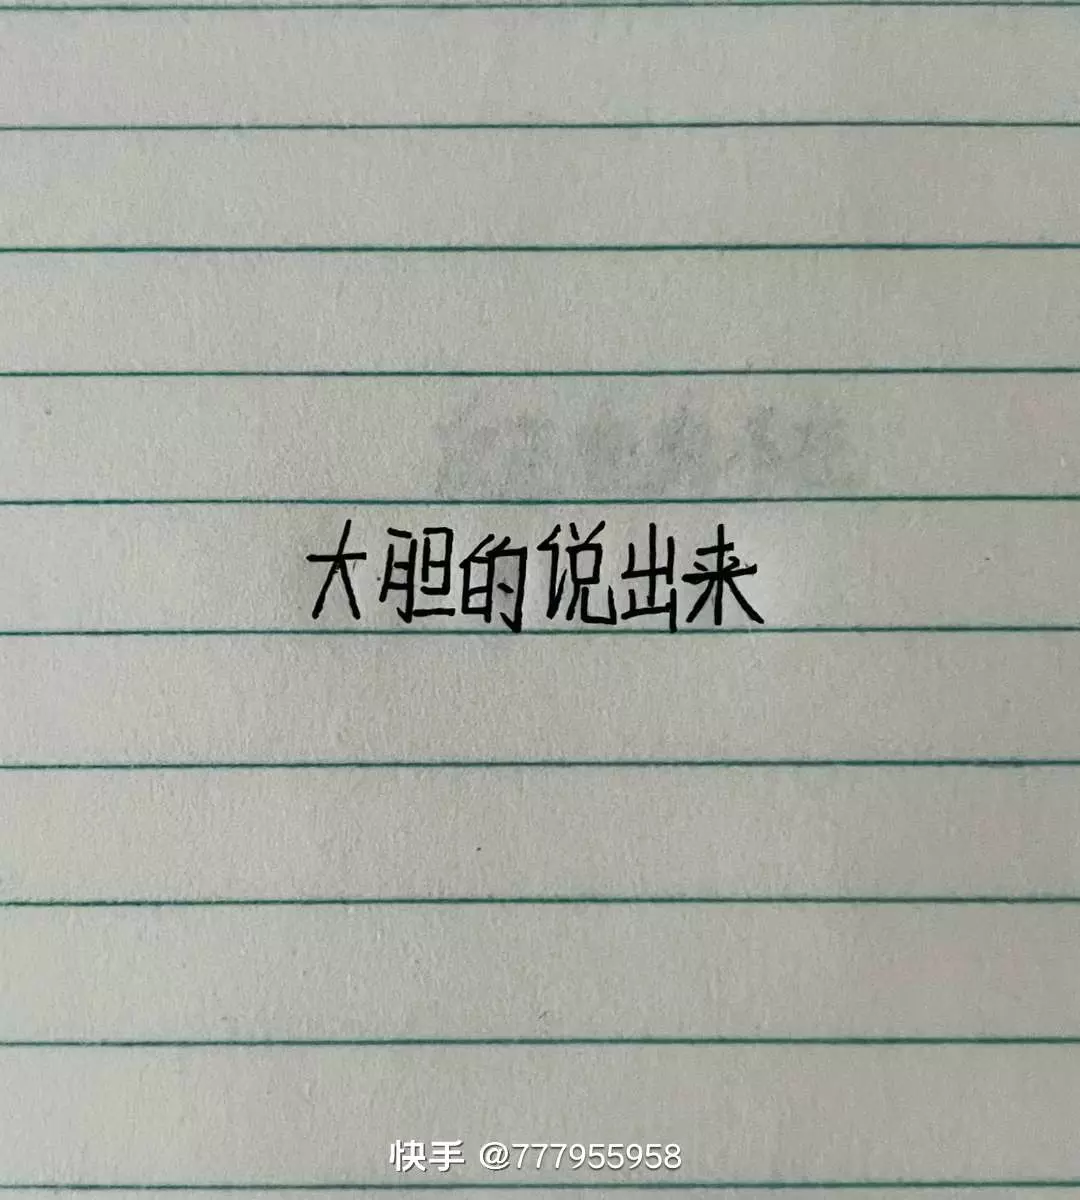 大胆的说出来
快手 @777955958